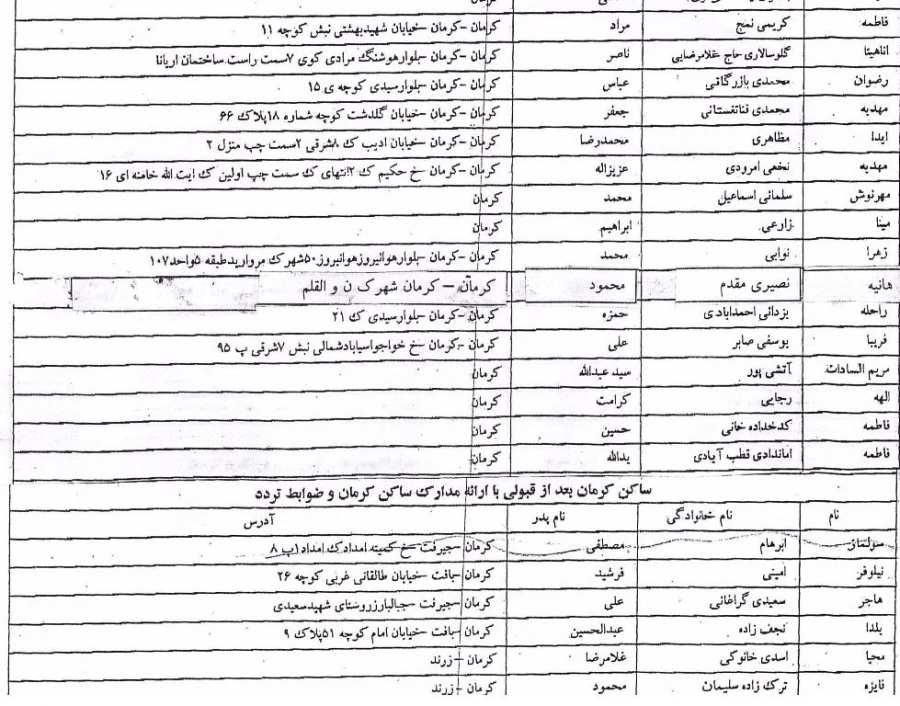 کرمان
فاطمه کریمی نمج مراد کرمان -کرمان -خیابان شهیدبهشتی نبش کوچه ۱۱
اناهیتا گلوسالاری حاج غلامرضایی ناصر کرمان -کرمان -بلوارهوشنگ مرادی کوی ۷سمت راست ساختمان اریانا
رضوان محمدی بازرگانی عباس کرمان -کرمان -بلوارسیدی کوچه ی ۱۵
مهدیه محمدی قناتغستانی جعفر کرمان -کرمان -خیابان گلدشت کوچه شماره ۱۸پلاک ۶۶
ایدا مظاهری محمدرضا کرمان -کرمان -خیابان ادیب ک ۸شرقی ۲سمت چپ منزل ۲
مهدیه نخعی امرودی عزیزاله کرمان -کرمان خ حکیم ک ۲انتهای ک سمت چپ اولین ک ایت الله خامنه ای ۱۶
مهرنوش سلمانی اسماعیل محمد کرمان
مینا زارعی ابراهیم کرمان
زهرا نوابی محمد کرمان -کرمان -بلوارهوانیروزهوانیروز۵۰شهرک مرواریدطبقه ۵واحد۱۰۷
هانیه نصیری مقدم محمود کرمان - کرمان شهرک ن و القلم
راحله یزدانی احمدابادی حمزه کرمان -کرمان -بلوارسیدی ک ۲۱
فریبا یوسفی صابر علی کرمان -کرمان خ خواجواسیابادشمالی نبش ۷شرقی پ ۹۵
مریم السادات آتشی پور سید عبدالله کرمان
الهه رجایی کرامت کرمان
فاطمه کدخداده خانی حسین کرمان
فاطمه اماندادی قطب آبادی یدالله کرمان
ساکن کرمان بعد از قبولی با ارائه مدارک ساکن کرمان و ضوابط تردد
نام نام خانوادگی نام پدر آدرس
ابرهام مصطفی کرمان -جیرفت -خ کمیته امدادک امداد۱پ ۸
نیلوفر امینی فرشید کرمان -بافت -خیابان طالقانی غربی کوچه ۲۶
هاجر سعیدی گراغانی علی کرمان -جیرفت -جبالبارزروستای شهیدسعیدی
یلدا نجف زاده عبدالحسین کرمان -بافت -خیابان امام کوچه ۵۱پلاک ۹
محیا اسدی خانوکی غلامرضا کرمان -زرند
فایزه ترک زاده سلیمان محمود کرمان -زرند